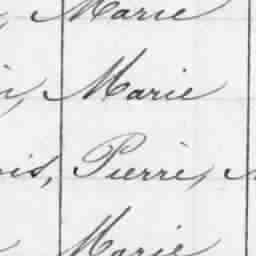 Marie
Marie
Pierre,
Marie